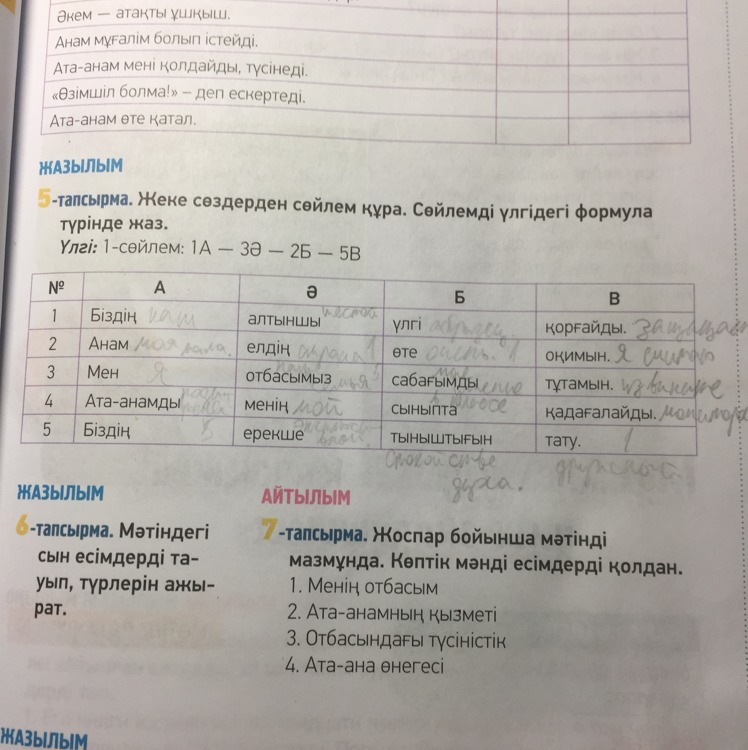 Әкем — атақты ұшқыш.
Анам мұғалім болып істейді.
Ата-анам мені қолдайды, түсінеді.
«Өзімшіл болма!» – деп ескертеді.
Ата-анам өте қатал.
ЖАЗЫЛЫМ
5-тапсырма. Жеке сөздерден сөйлем құра. Сөйлемді үлгідегі формула
түрінде жаз.
Үлгі: 1-сөйлем: 1А — 3Ә — 2Б — 5В
№ А Ә Б В
1 Біздің наш алтыншы шестой үлгі қорғайды.
2 Анам моя мама. елдің өте очень. оқимын. Я
3 Мен Я отбасымыз сабағымды тұтамын.
4 Ата-анамды менің мой сыныпта в классе қадағалайды.
5 Біздің ерекше тыныштығын тату.
спокойстве
духа.
ЖАЗЫЛЫМ
6-тапсырма. Мәтіндегі
сын есімдерді та-
уып, түрлерін ажы-
рат.
АЙТЫЛЫМ
7-тапсырма. Жоспар бойынша мәтінді
мазмұнда. Көптік мәнді есімдерді қолдан.
1. Менің отбасым
2. Ата-анамның қызметі
3. Отбасындағы түсіністік
4. Ата-ана өнегесі
ЖАЗЫЛЫМ